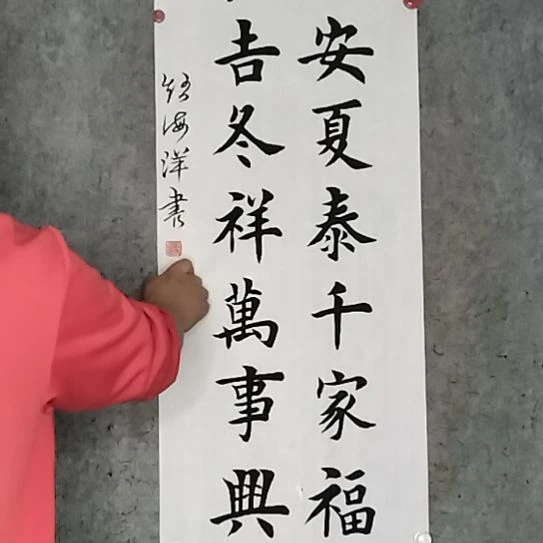 安夏泰千家福
吉冬祥萬事興
海洋書